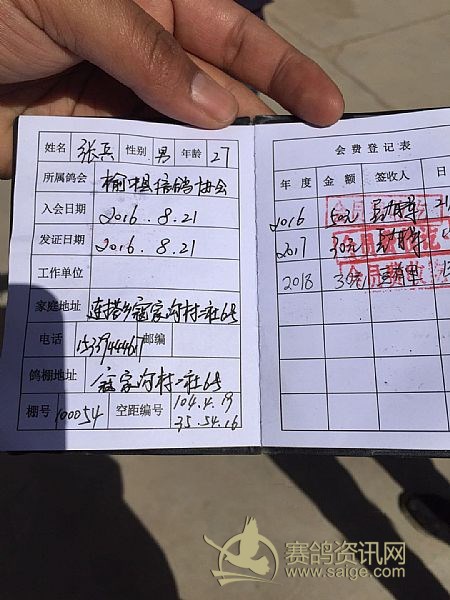 姓名 张兵 性别 男 年龄 27
所属鸽会 榆中县信鸽协会
入会日期 2016.8.21
发证日期 2016.8.21
工作单位
家庭地址 连搭乡寇家沟村二社6号
电话 邮编
鸽棚地址 寇家沟村二社6号
棚号 100054 空距编号 104.4.19
35.54.16
会费登记表
年度 金额 签收人 日
2016 50元
2017 30元
2018 30元
赛鸽资讯网
www.saige.com